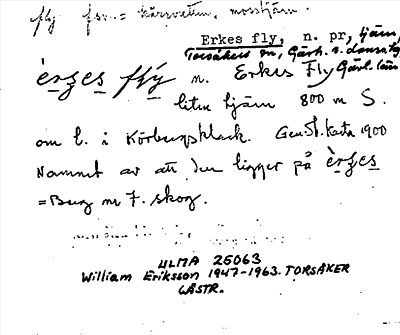 fly f sv. = kärrvatten, mosstjärn.
Erkes fly, n. pr, tjärn,
Torsåkers sn, Gästr. o. domsaga,
Gävl. län
èrʒes flý n. Erkes Fly
liten tjärn 800 m S.
om b. i Körbergsklack. Gen.St. karta 1900
Namnet av att den ligger på èrʒes
= Berg nr 7. skog.
ULMA 25063
William Eriksson 1947-1963. TORSÅKER
GÄSTR.